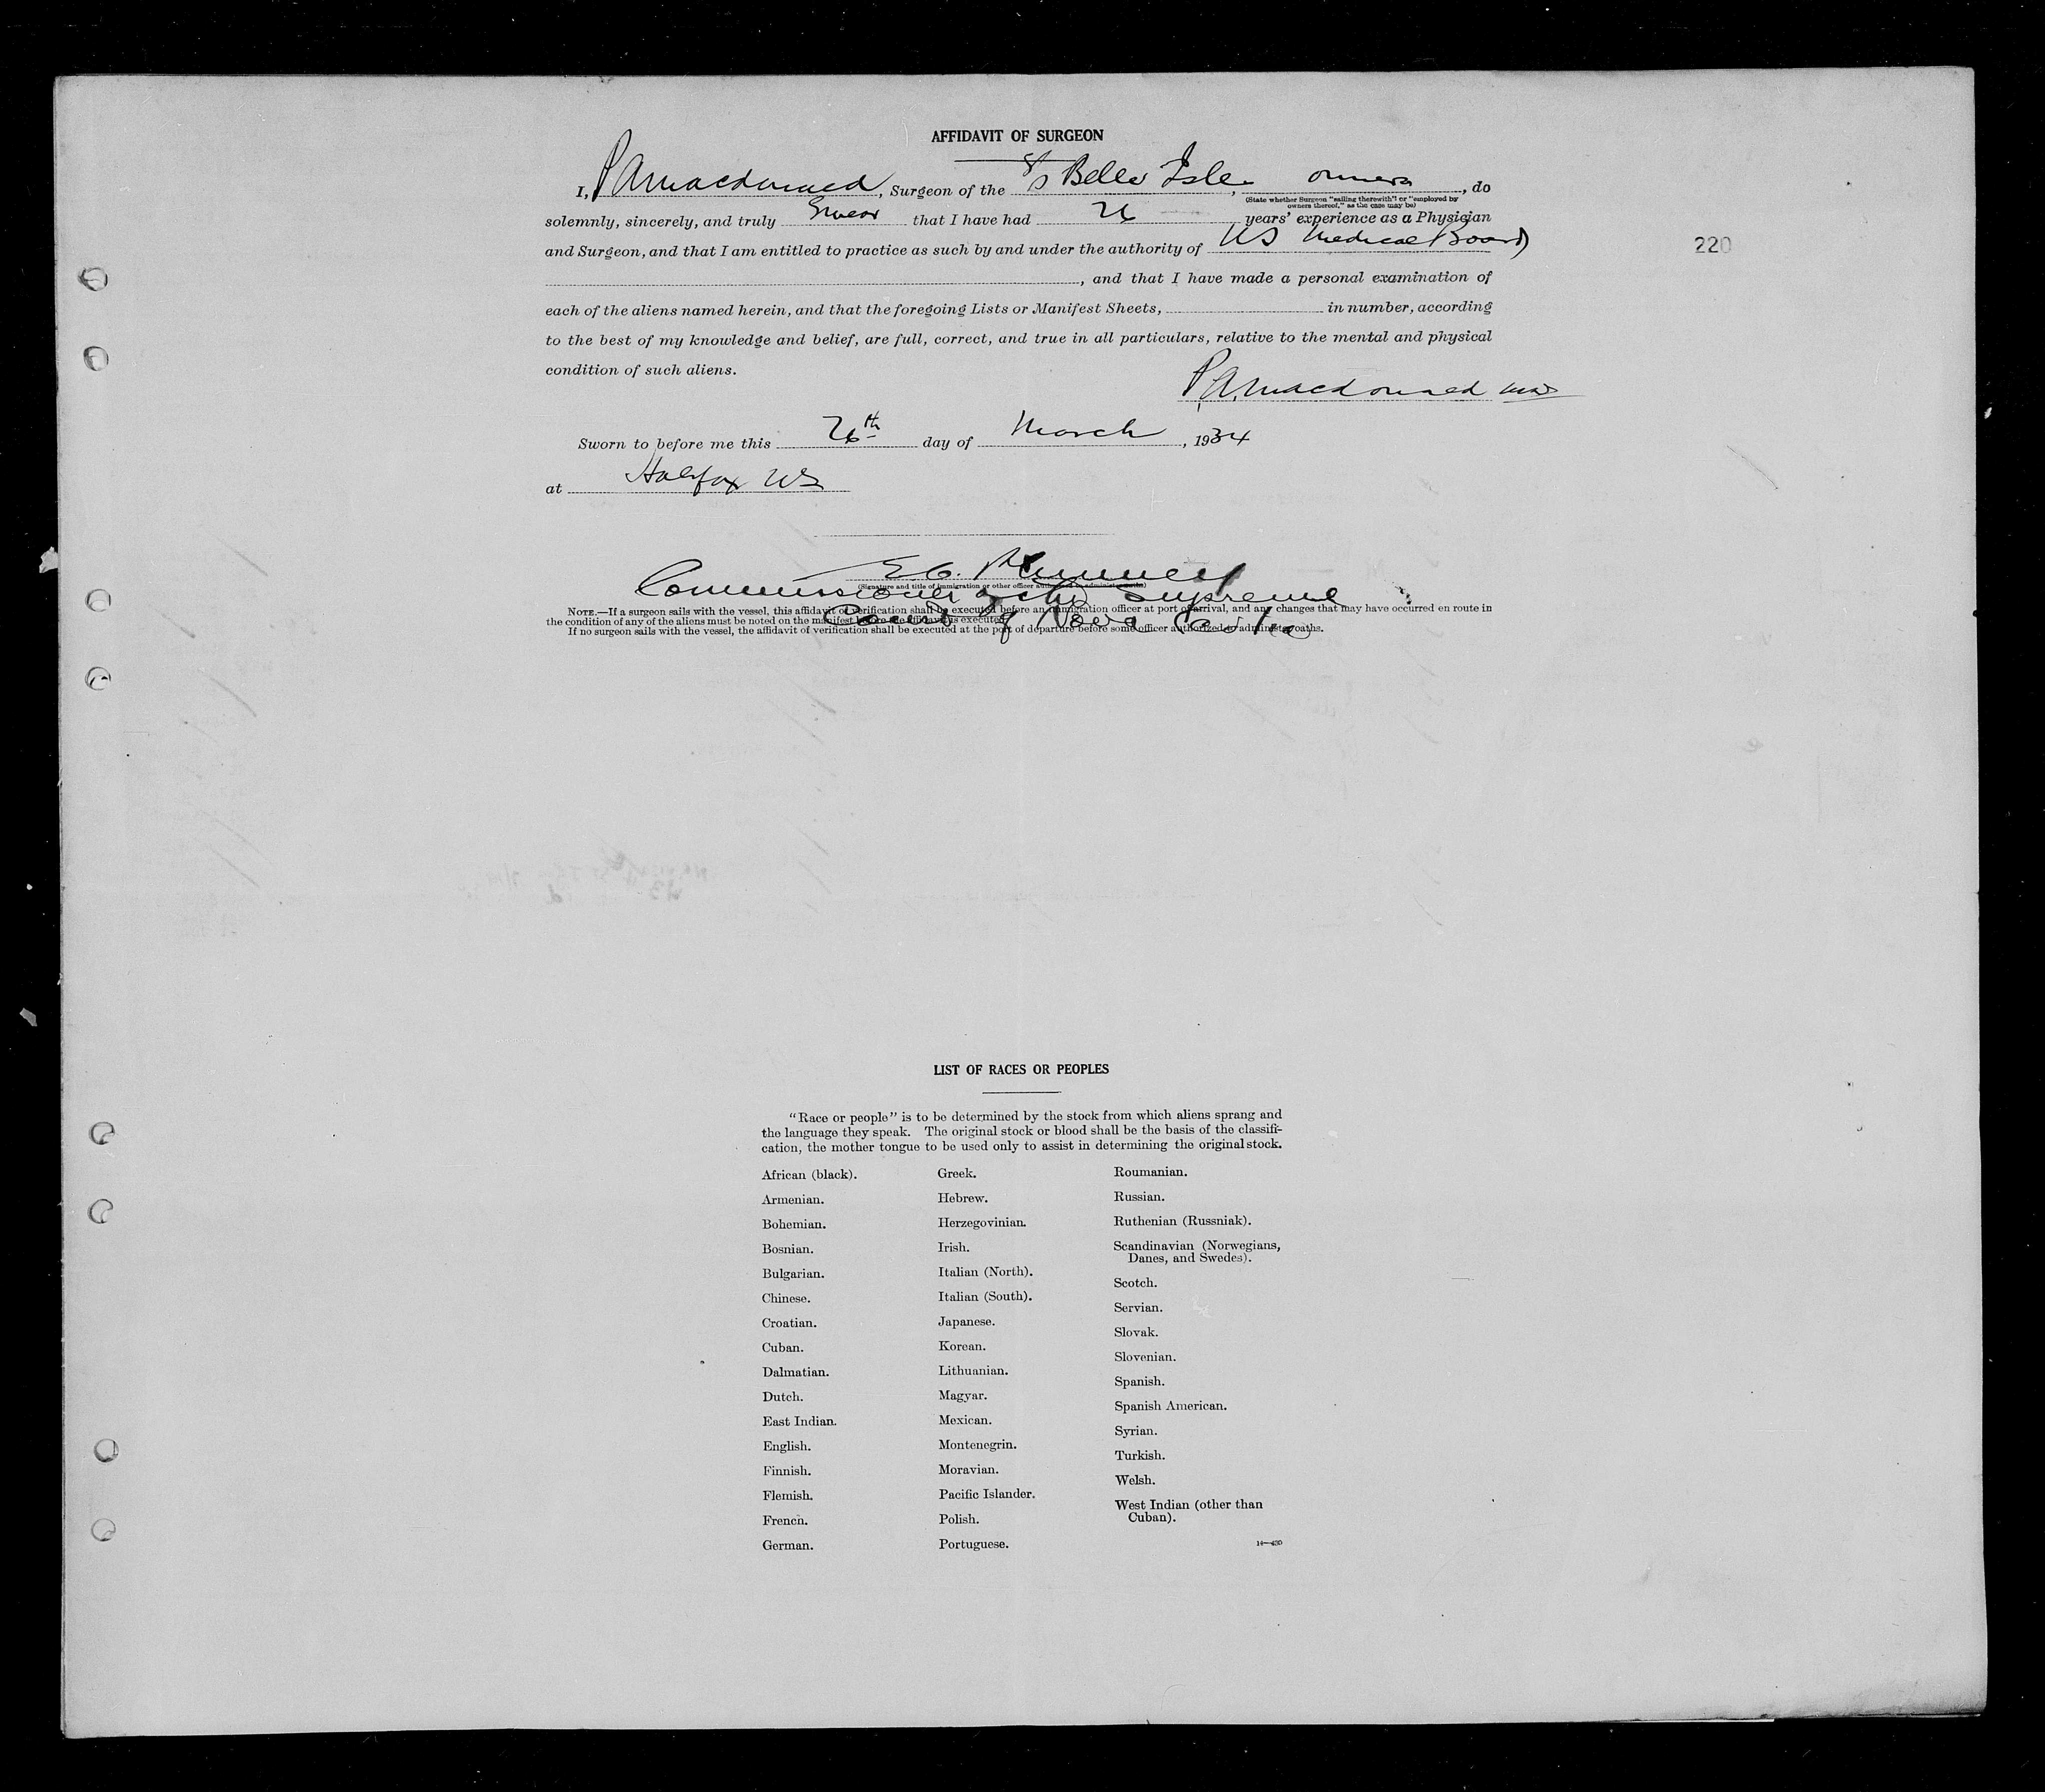 AFFIDAVIT OF SURGEON
I, P A Macdonald, Surgeon of the S/S Belle Isle, owners, do
(State whether Surgeon "sailing therewith" or "employed by
owners thereof," as the case may be)
solemnly, sincerely, and truly Swear that I have had 26 years' experience as a Physician
and Surgeon, and that I am entitled to practice as such by and under the authority of NS Medical Board
220
, and that I have made a personal examination of
each of the aliens named herein, and that the foregoing Lists or Manifest Sheets, in number, according
to the best of my knowledge and belief, are full, correct, and true in all particulars, relative to the mental and physical
condition of such aliens.
P.A. Macdonald MD
Sworn to before me this 26th day of March, 1934
at Halifax NS
(Signature and title of immigration or other officer authorized to administer oaths)
Commissioner of the Supreme
Court of Nova Scotia
NOTE.—If a surgeon sails with the vessel, this affidavit of verification shall be executed before an immigration officer at port of arrival, and any changes that may have occurred en route in
the condition of any of the aliens must be noted on the manifest before the affidavit is executed.
If no surgeon sails with the vessel, the affidavit of verification shall be executed at the port of departure before some officer authorized to administer oaths.
LIST OF RACES OR PEOPLES
"Race or people" is to be determined by the stock from which aliens sprang and
the language they speak. The original stock or blood shall be the basis of the classifi-
cation, the mother tongue to be used only to assist in determining the original stock.
African (black).
Armenian.
Bohemian.
Bosnian.
Bulgarian.
Chinese.
Croatian.
Cuban.
Dalmatian.
Dutch.
East Indian.
English.
Finnish.
Flemish.
French.
German.
Greek.
Hebrew.
Herzegovinian.
Irish.
Italian (North).
Italian (South).
Japanese.
Korean.
Lithuanian.
Magyar.
Mexican.
Montenegrin.
Moravian.
Pacific Islander.
Polish.
Portuguese.
Roumanian.
Russian.
Ruthenian (Russniak).
Scandinavian (Norwegians,
Danes, and Swedes).
Scotch.
Servian.
Slovak.
Slovenian.
Spanish.
Spanish American.
Syrian.
Turkish.
Welsh.
West Indian (other than
Cuban).